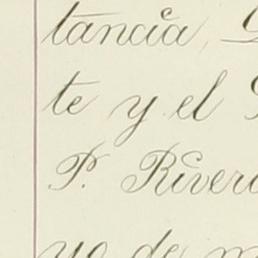 tancia,
te y el
P. Rivero
yo de m